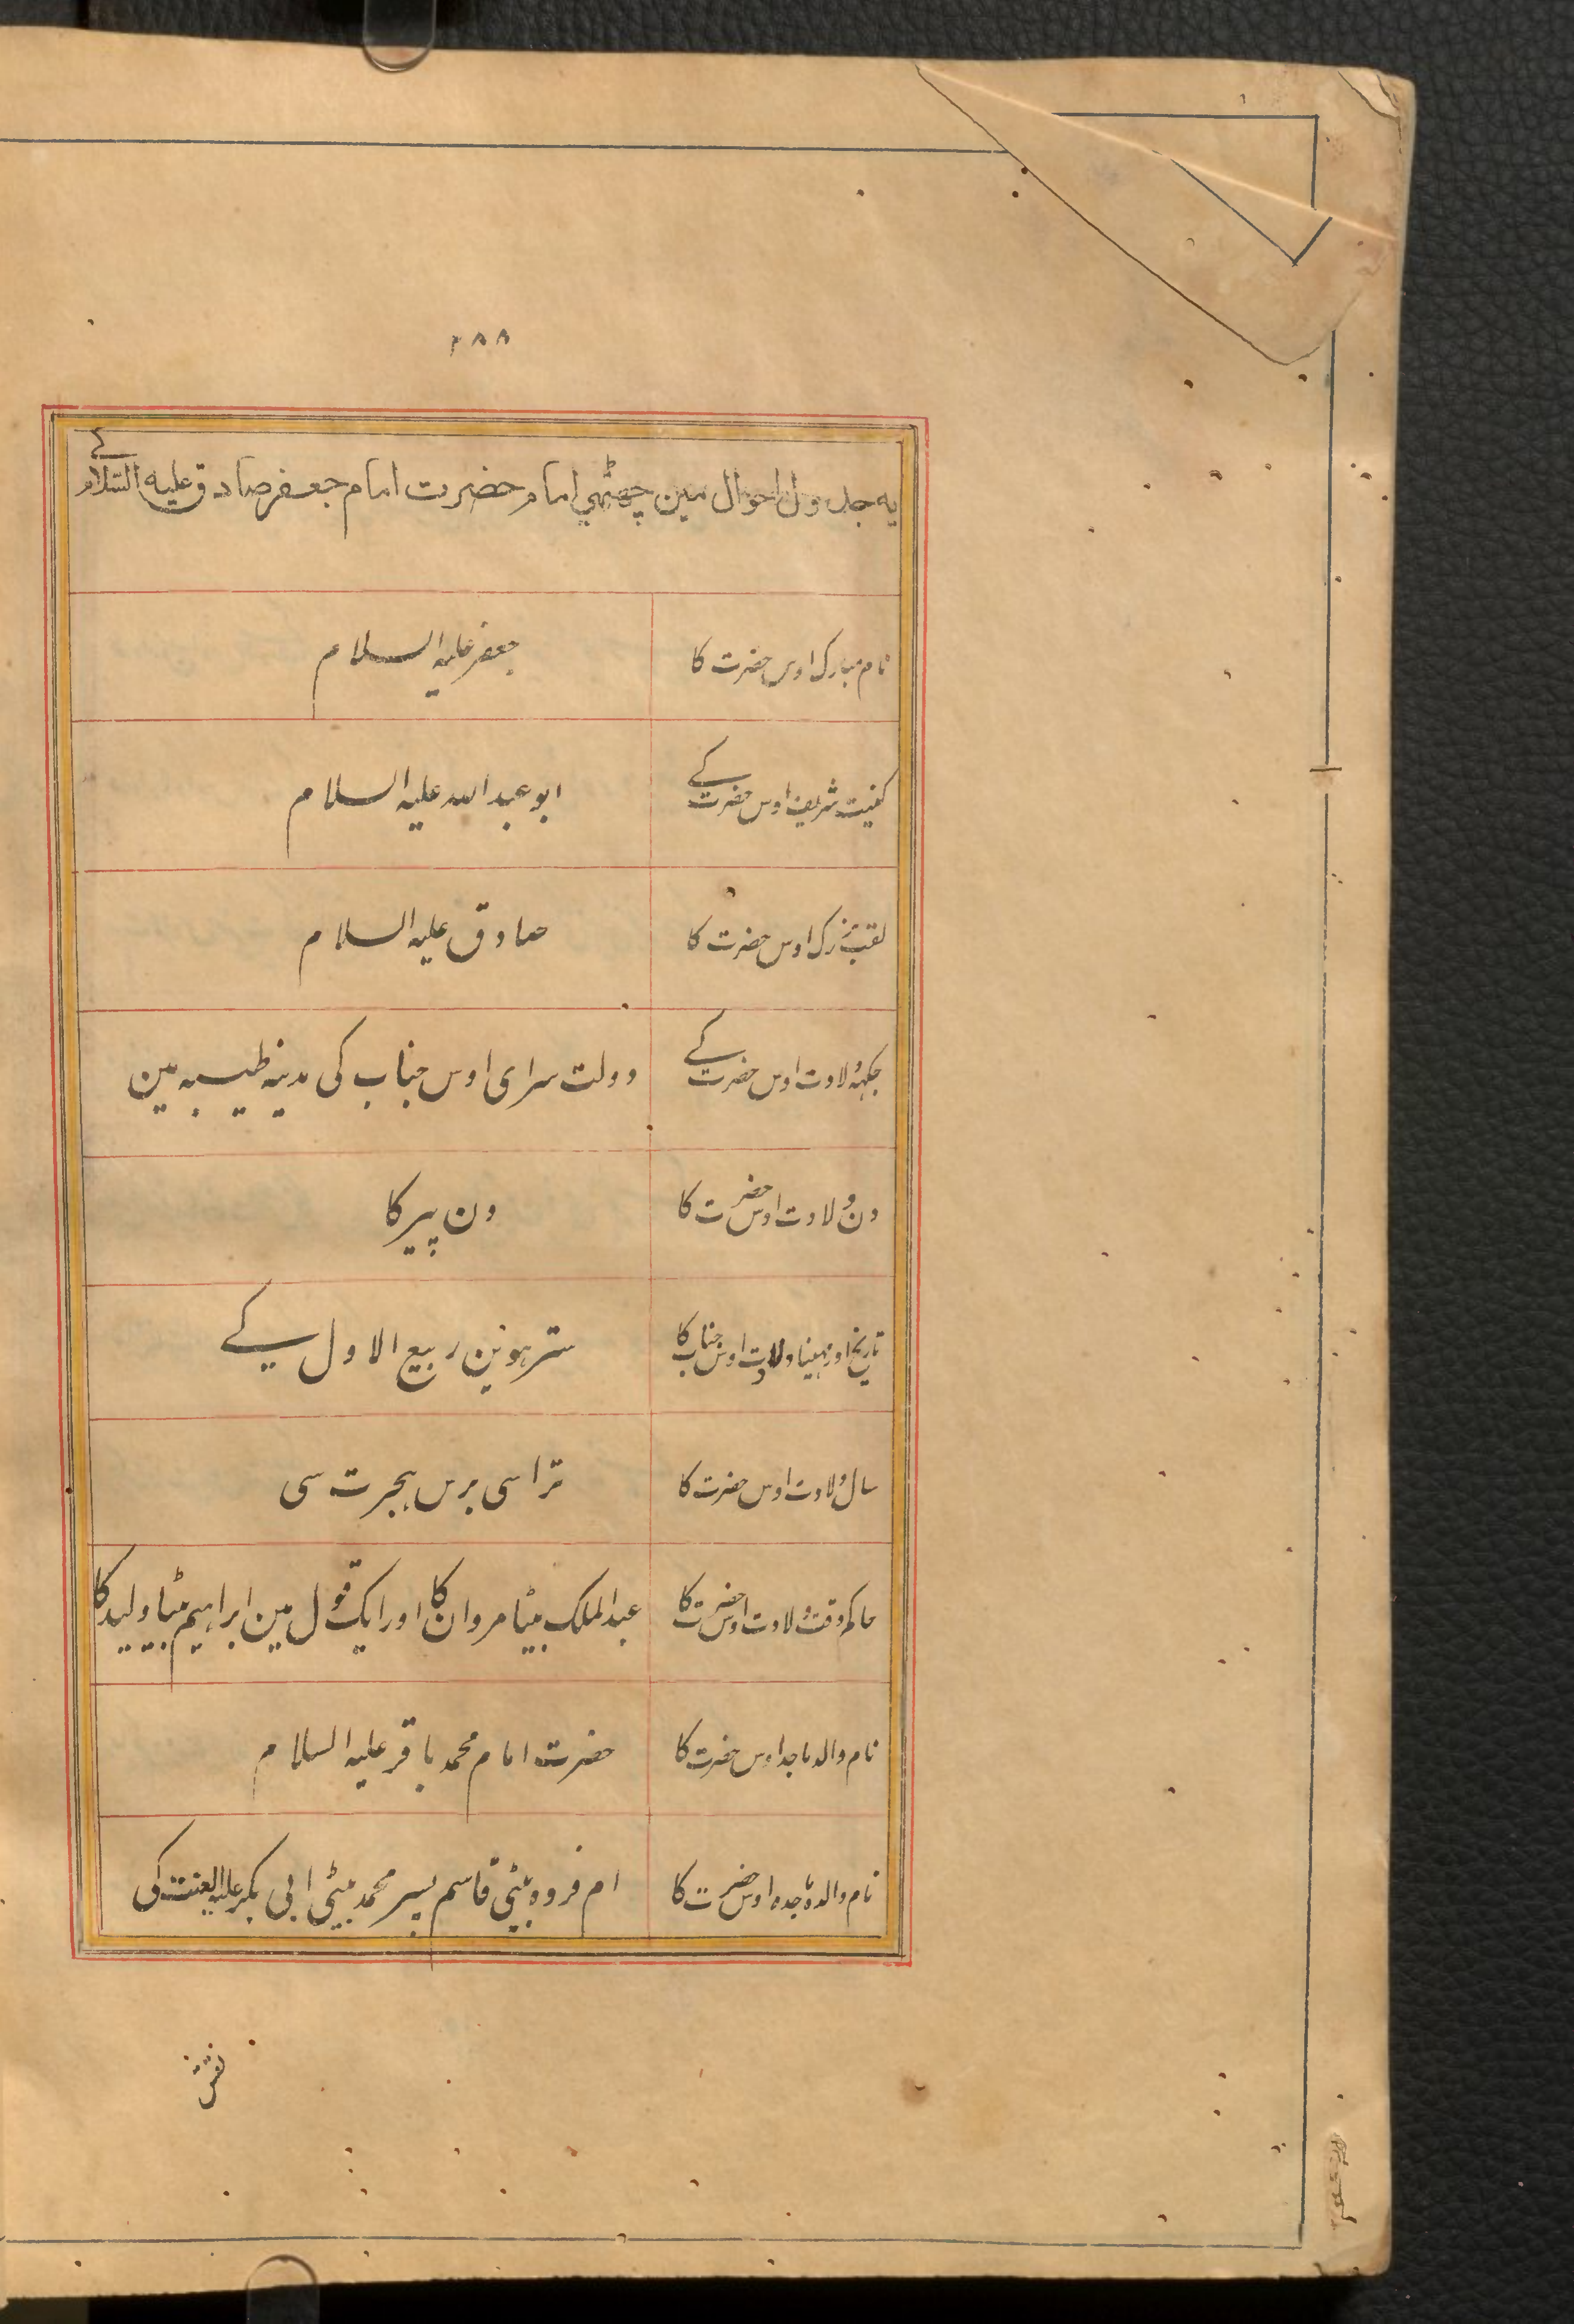 ٢٨٨
یه جدول احوال مین چھٹھی امام حضرت امام جعفر صادق علیه السلام کے
نام مبارک اوس حضرت کا
جعفر علیه السلام
کنیت شریف اوس حضرت کے
ابو عبد الله علیه السلام
لقب بزرک اوس حضرت کا
صادق علیه السلام
جکہہ ولادت اوس حضرت کے
دولت سرای اوس جناب کی مدینه طیبه مین
دن ولادت اوس حضرت کا
دن پیر کا
تاریخ اور مہینا ولادت اوس جناب کا
سترہوین ربیع الاول کے
سال ولادت اوس حضرت کا
تراسی برس ہجرت سی
حاکم وقت ولادت اوس حضرت کا
عبد الملک بیٹا مروان کا اور ایک قول مین ابراہیم بیٹا ولید کا
نام والد ماجد اوس حضرت کا
حضرت امام محمد باقر علیه السلام
نام والدہ ماجدہ اوس حضرت کا
ام فروہ بیٹی قاسم پسر محمد بیٹی ابی بکر علیه لعنت کی
نقش